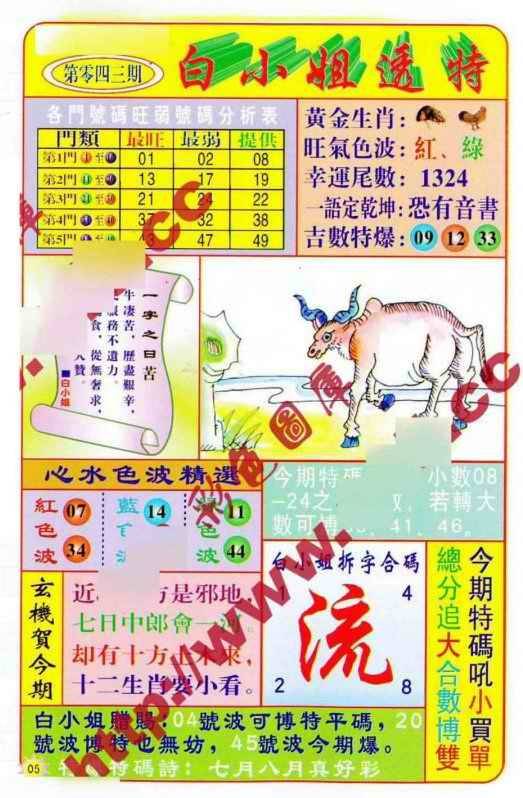 第零四三期
白小姐透特
各門號碼旺弱號碼分析表
門類 最旺 最弱 提供
第1門 至 01 02 08
第2門 至 13 17 19
第3門 至 21 24 22
第4門 至 37 32 38
第5門 至 43 47 49
黃金生肖:
旺氣色波:紅、綠
幸運尾數: 1324
一語定乾坤:恐有音書
吉數特爆: 09 12 33
一字之曰苦
牛凄苦,歷盡艱辛,
服務不遺力。
食,從無奢求,
人贊。
■白小姐
彩色圖庫
http://www.
.cc
心水色波精選
紅色波 07 34
藍 14
綠色波 11 44
今期特碼 小數08
-24之 若轉大
數可博 41、46。
玄機賀今期
近 方是邪地,
七日中郎會一河。
却有十方正未來,
十二生肖要小看。
白小姐拆字合碼
1 4
流
2 8
今期特碼吼小買單
總分追大合數博雙
白小姐贈賜:04號波可博特平碼,20
號波博特也無妨,45號波今期爆。
05
特碼詩:七月八月真好彩